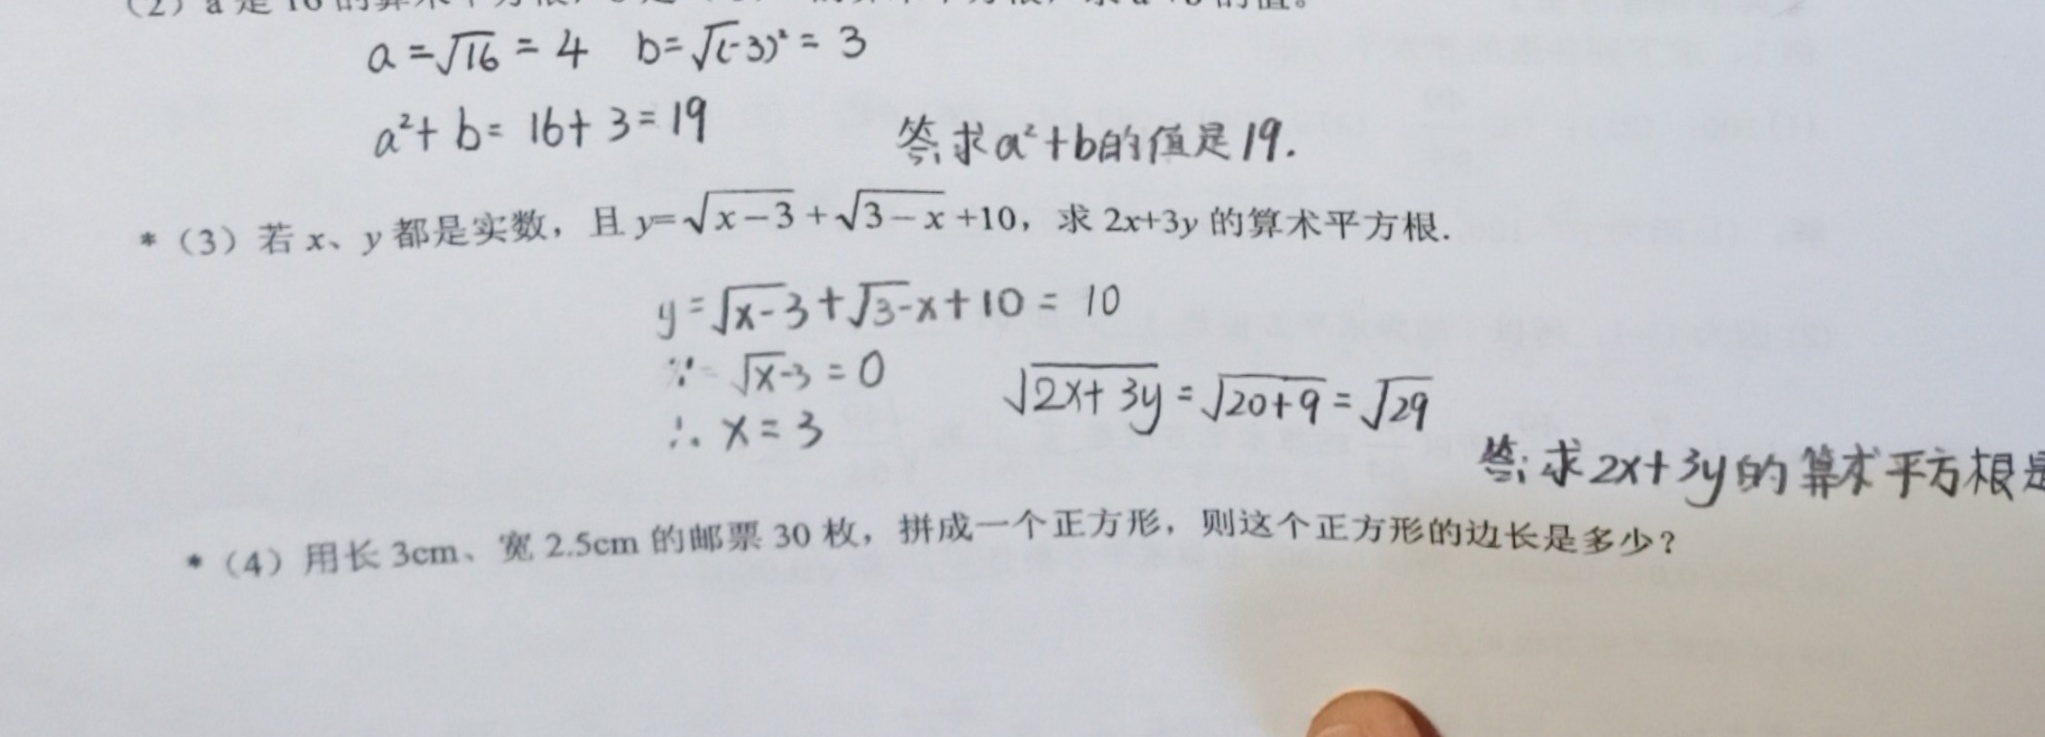 a=√16=4 b=√(-3)²=3
a²+b=16+3=19 答:求a²+b的值是19.
*(3)若 x、y 都是实数,且 y=√x−3+√3−x+10,求 2x+3y 的算术平方根.
y=√x-3+√3-x+10=10
∵ √x-3=0 √2x+3y=√20+9=√29
∴ x=3
答:求2x+3y的算术平方根是
*(4)用长 3cm、宽 2.5cm 的邮票 30 枚,拼成一个正方形,则这个正方形的边长是多少?